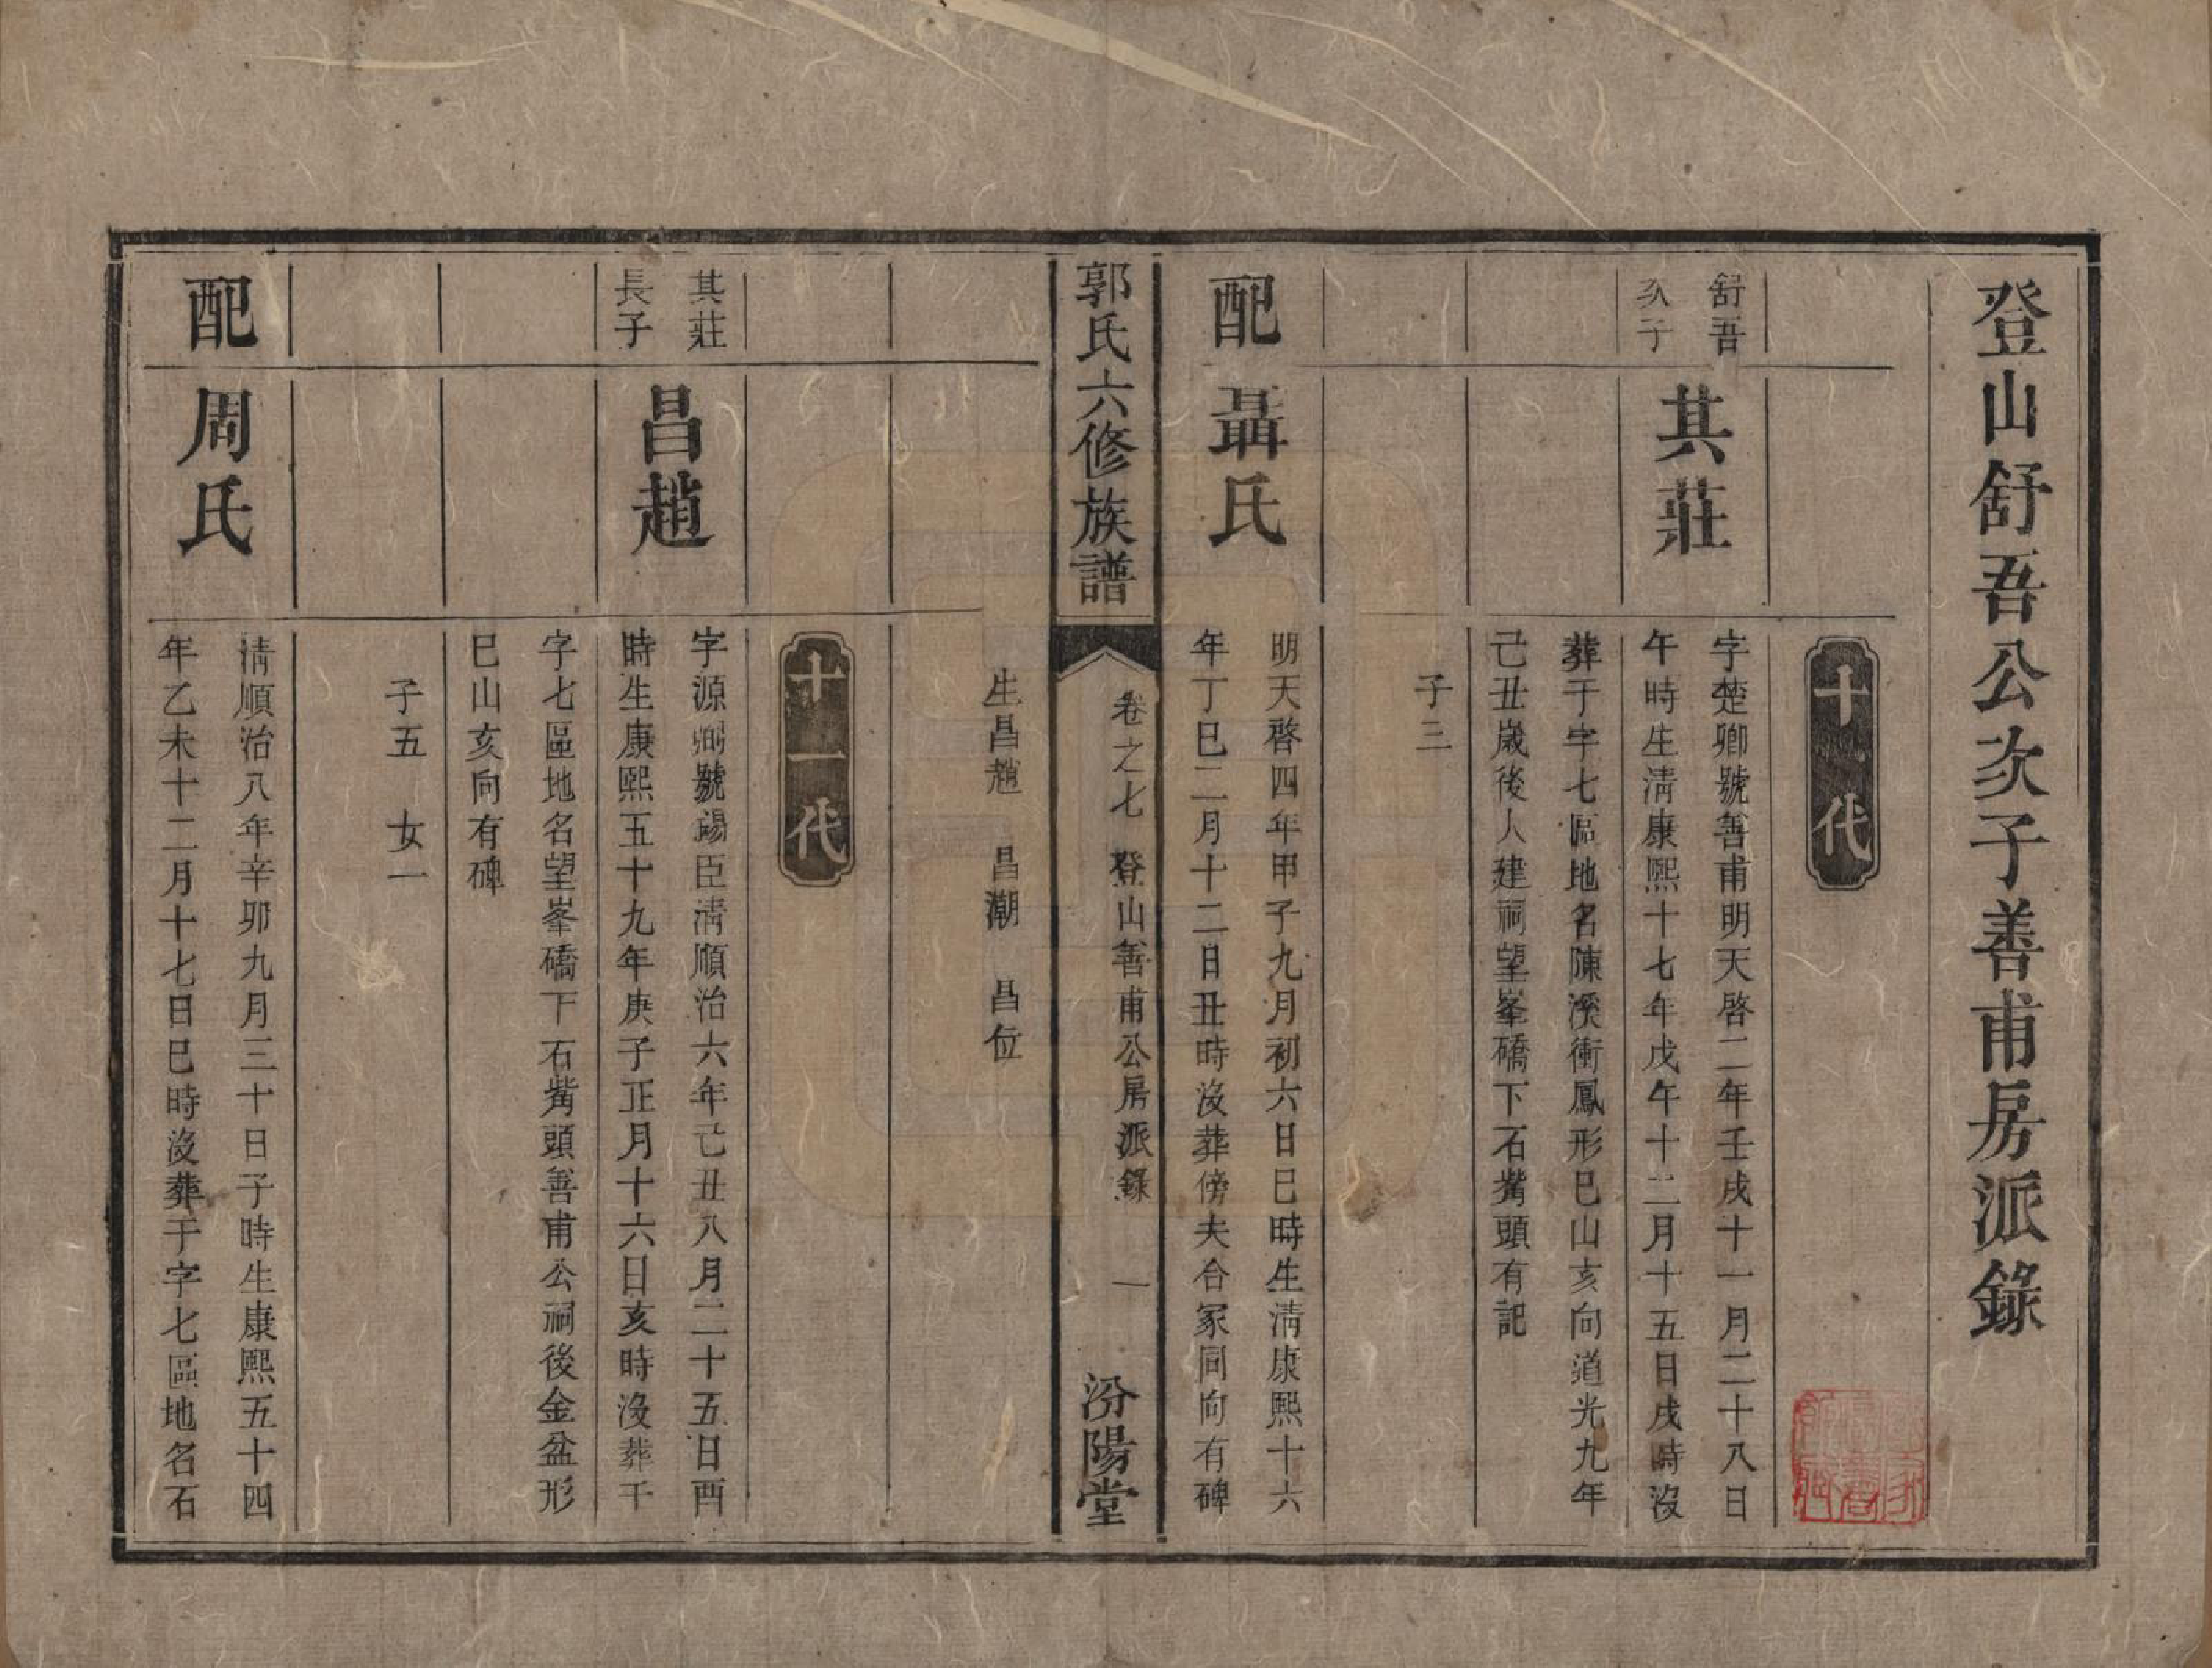 登山舒吾公次子善甫房派錄
十代
舒吾
次子
其莊
字楚卿號善甫明天啓二年壬戌十一月二十八日
午時生清康熙十七年戊午十二月十五日戌時沒
葬于字七區地名陳溪衝鳳形巳山亥向道光九年
己丑歲後人建祠望峯礄下石嘴頭有記
子三
配
聶氏
明天啓四年甲子九月初六日巳時生清康熙十六
年丁巳二月十二日丑時沒葬傍夫合冢同向有碑
郭氏六修族譜
卷之七 登山善甫公房派錄 一
汾陽堂
生昌趙 昌潮 昌位
十一代
其莊
長子
昌趙
字源卿號錫臣清順治六年己丑八月二十五日酉
時生康熙五十九年庚子正月十六日亥時沒葬干
字七區地名望峯礄下石嘴頭善甫公祠後金盆形
巳山亥向有碑
子五 女一
配
周氏
清順治八年辛卯九月三十日子時生康熙五十四
年乙未十二月十七日巳時沒葬干字七區地名石